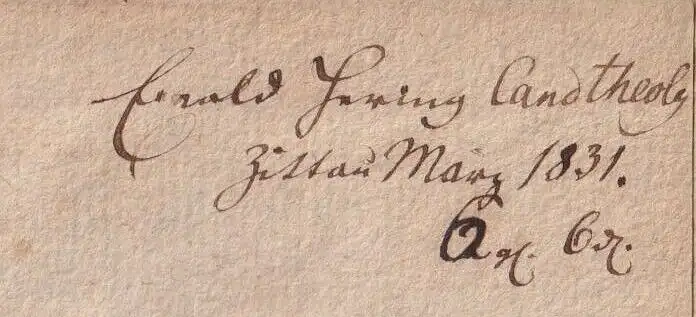 Ewald Hering Cand theolg
Zittau März 1831.
6 gr. 6 d.